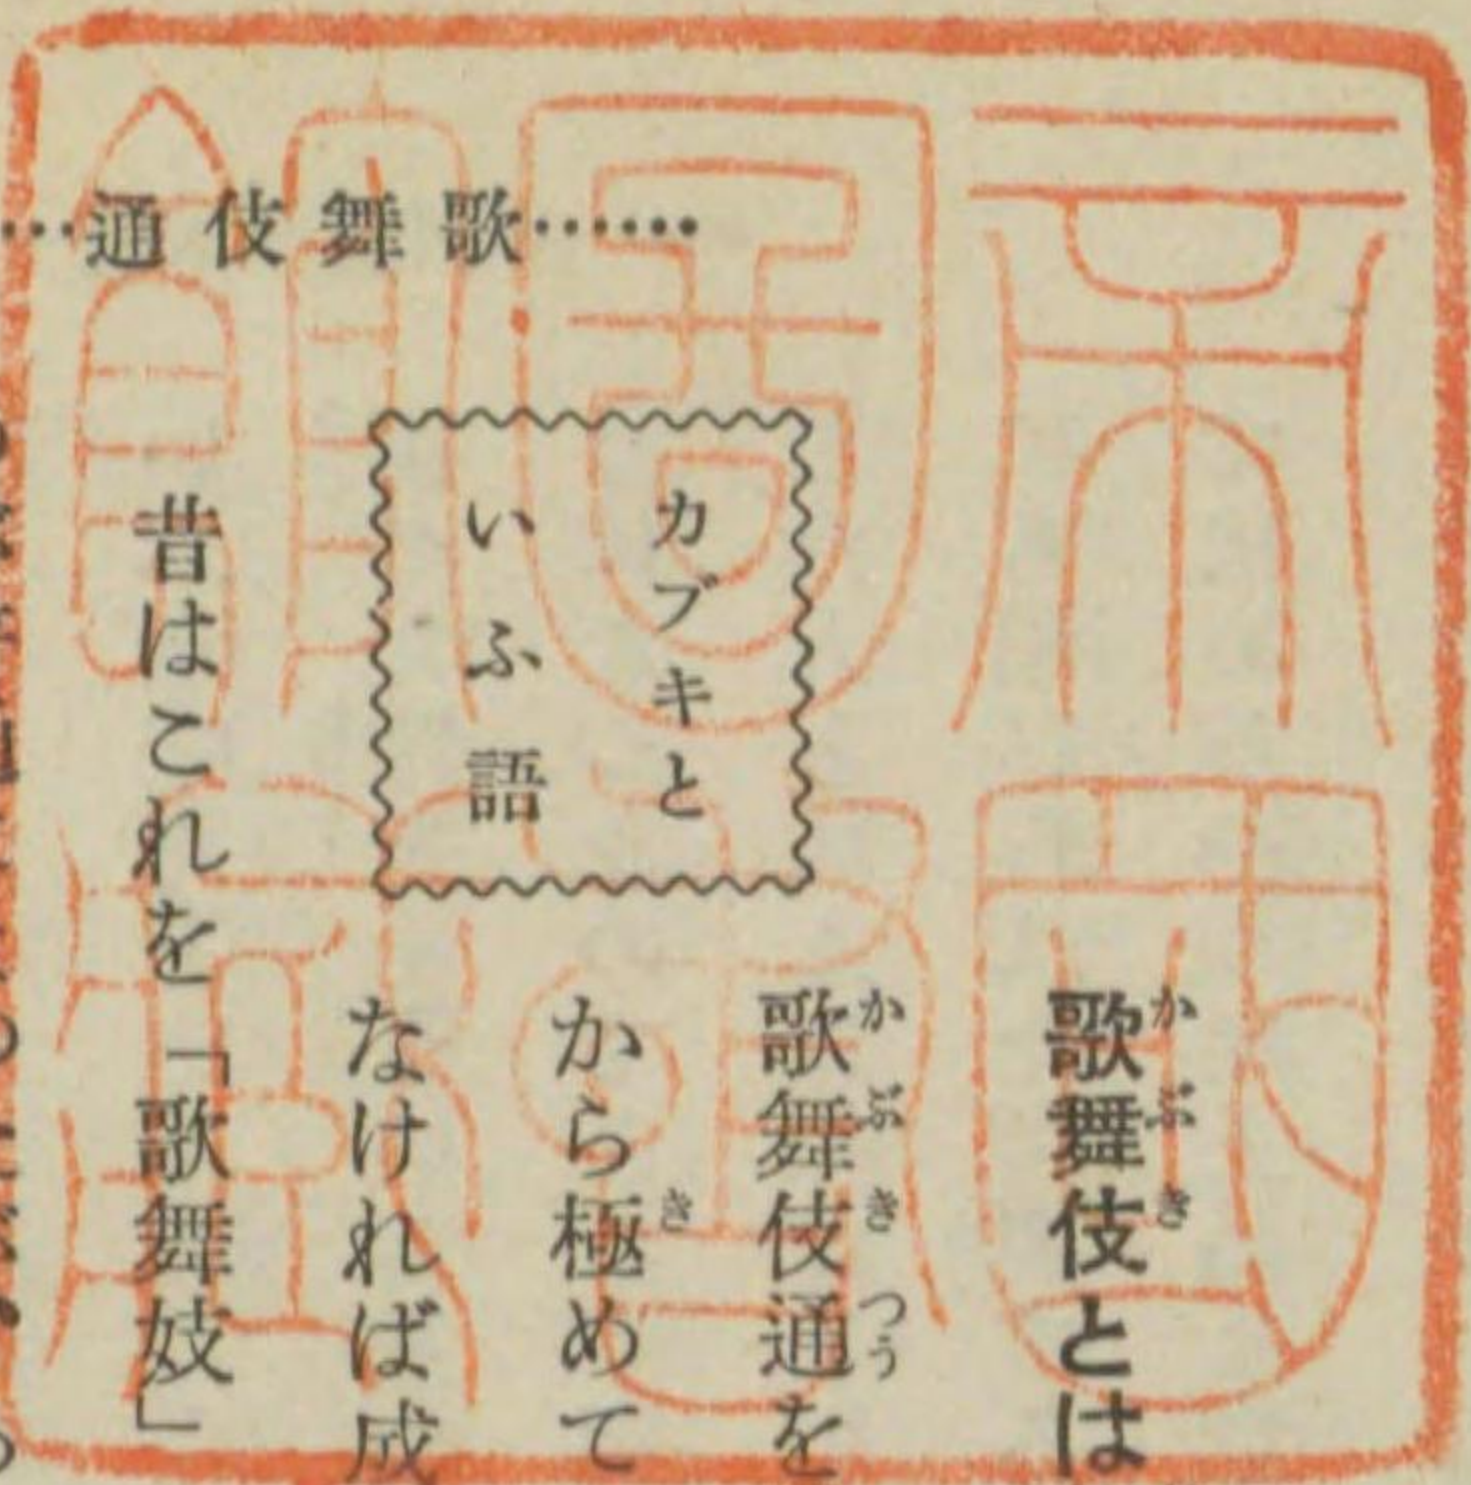 ……歌舞伎通…
歌舞伎とは
歌舞伎通を
から極めて
なければ成
カブキと
いふ語
昔はこれを「歌舞妓」